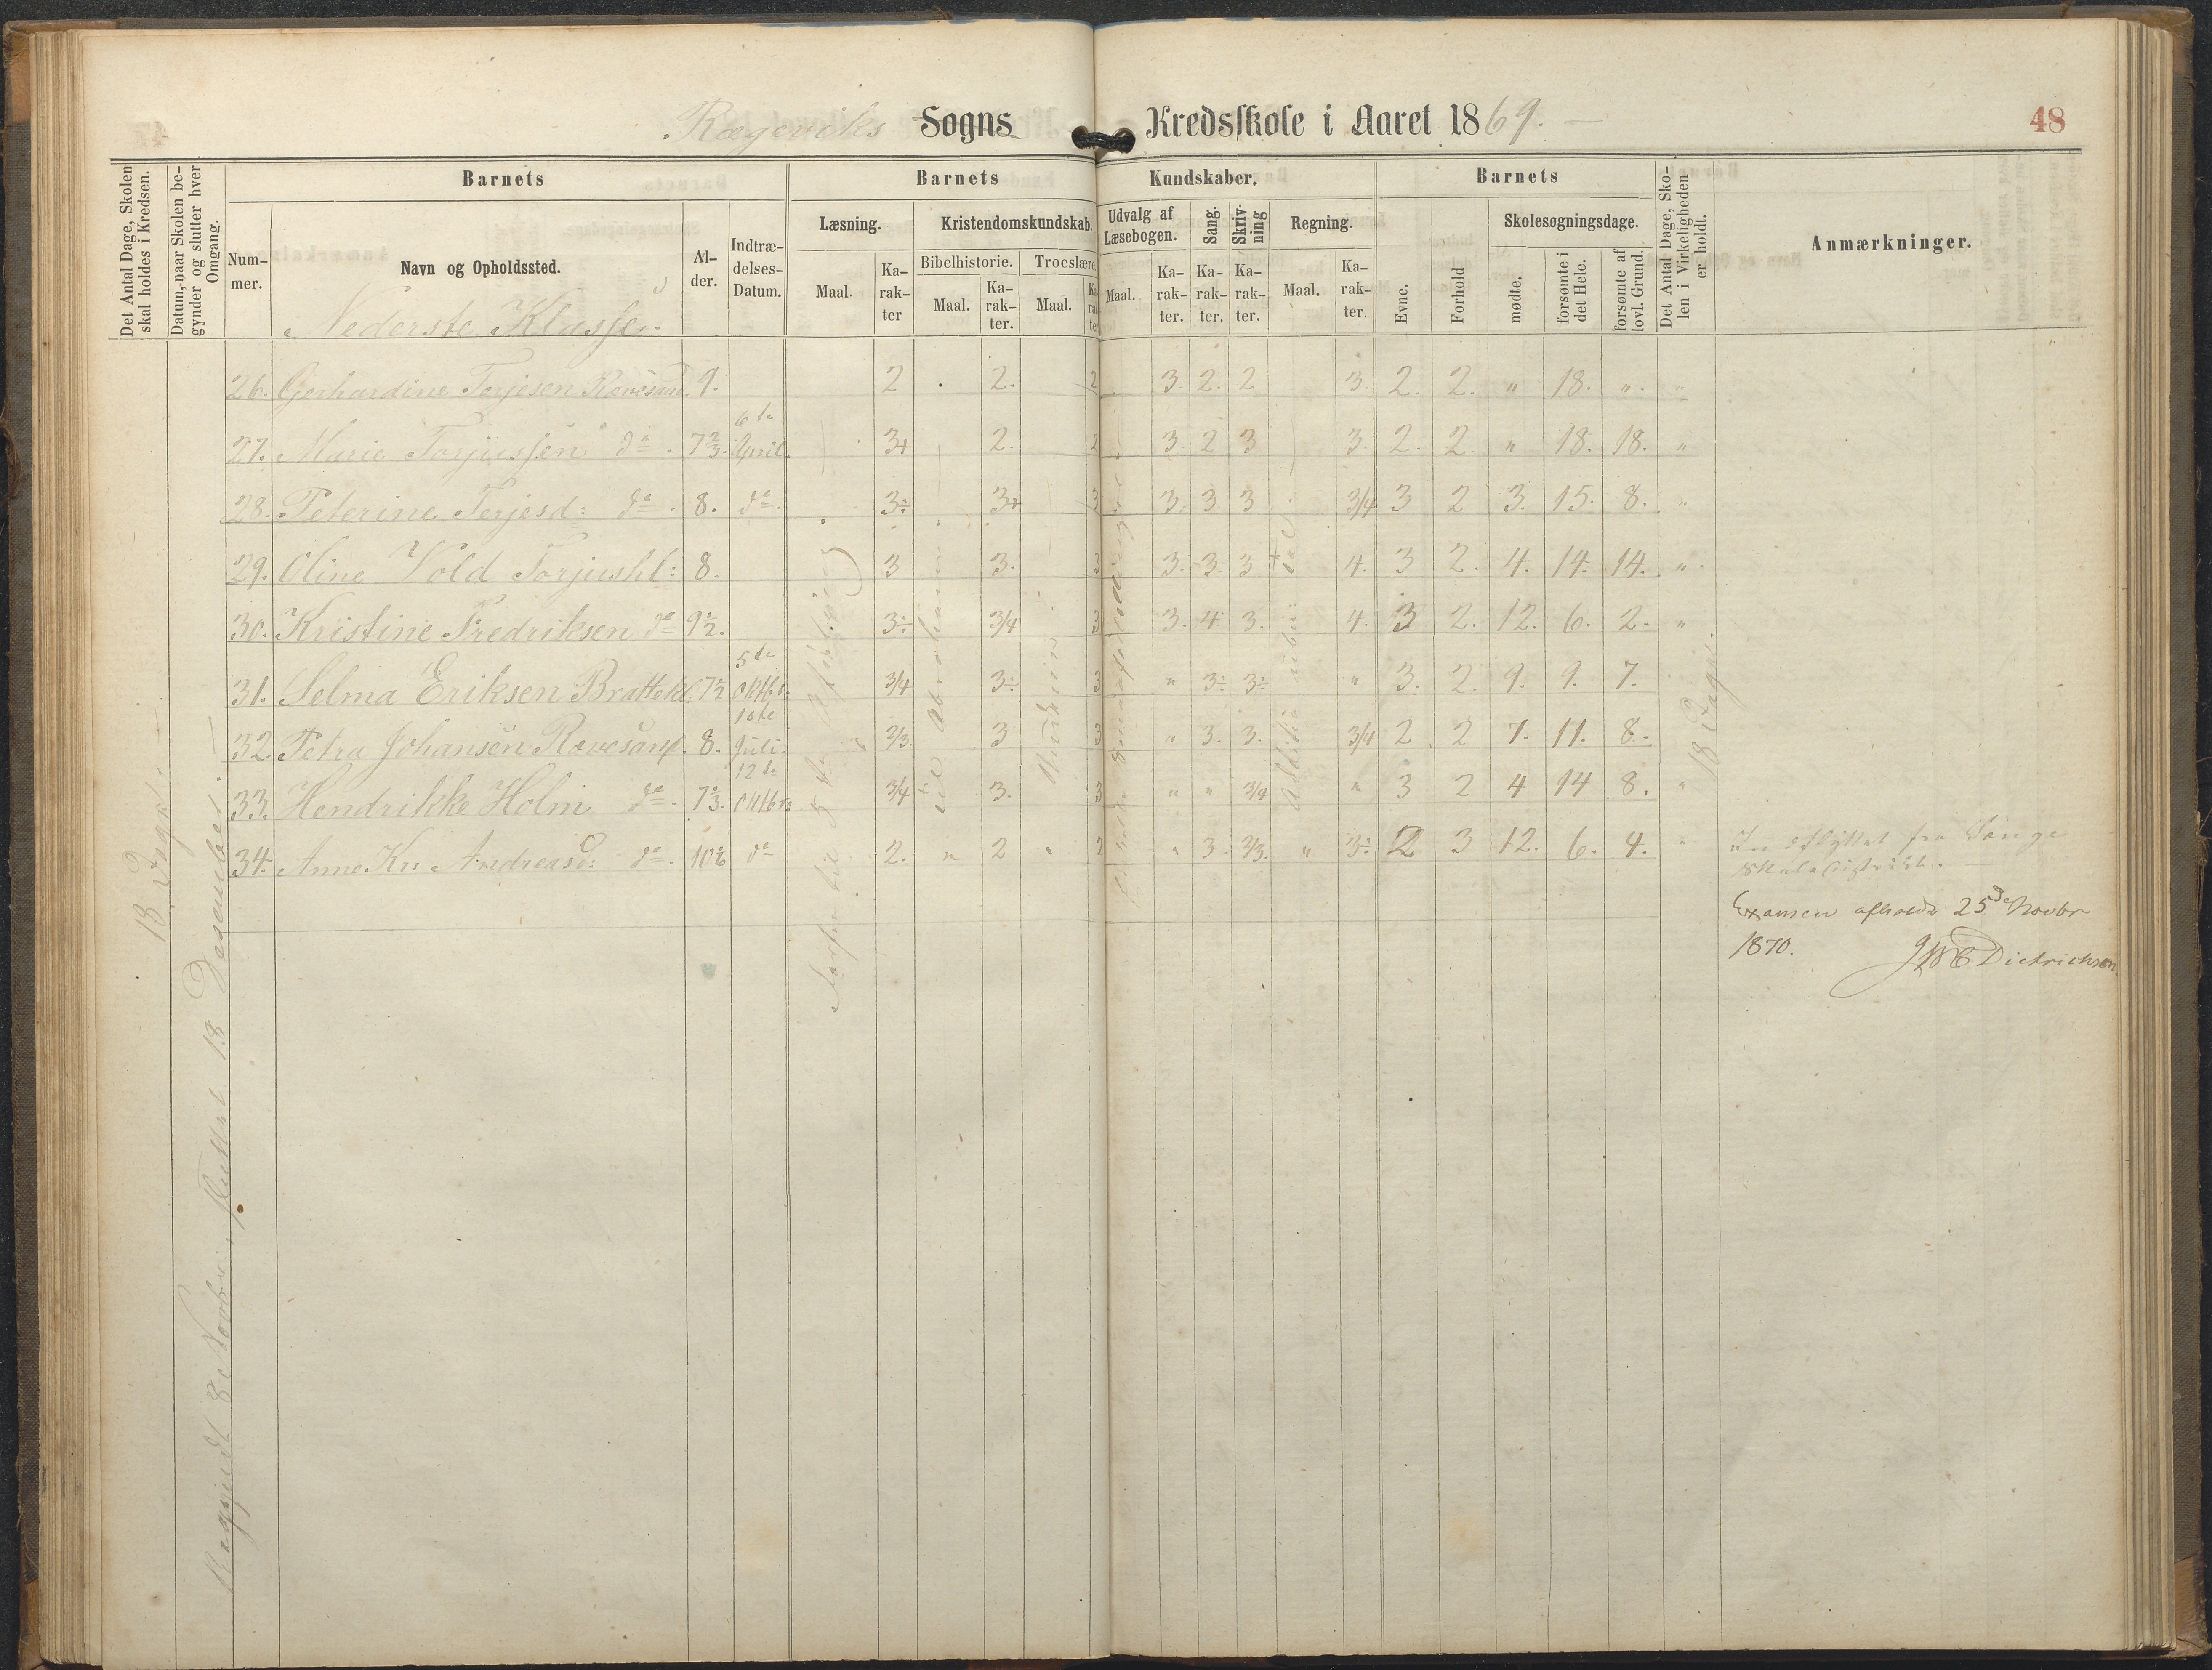 Rægeviks Sogns Kredsskole i Aaret 1869. 48
Det Antal Dage, Skolen skal holdes i Kredsen.
Datum, naar Skolen begynder og slutter hver Omgang.
Barnets
Nummer.
Navn og Opholdssted.
Alder.
Indtrædelses-Datum.
Barnets Kundskaber.
Læsning.
Maal.
Karakter
Kristendomskundskab.
Bibelhistorie.
Maal.
Karakter.
Troeslære.
Maal.
Karakter
Udvalg af Læsebogen.
Maal.
Karakter.
Sang.
Karakter.
Skrivning
Karakter.
Regning.
Maal.
Karakter.
Barnets
Evne.
Forhold
Skolesøgningsdage.
mødte.
forsømte i det Hele.
forsømte af lovl. Grund.
Det Antal Dage, Skolen i Virkeligheden er holdt.
Anmærkninger.
Nederste Klasse.
26. Gerhardine Terjesen Revesand. 9. 2 . 2. 2 3. 2. 2 3. 2. 2. " 18. ". "
27. Marie Torjussen do. 7 2/3. 6te April. 3+ 2. 2 3. 2 3 3. 2. 2. " 18. 18. "
28. Peterine Terjesd: do. 8. do. 3÷ 3+ 3 3. 3. 3 3/4 3 2 3. 15. 8. "
29. Oline Vold Torjushl: 8. 3 3. 3 3. 3. 3 4. 3 2. 4. 14. 14. "
30. Kristine Fredriksen do 9½. 3÷ 3/4 3 3. 4 3. 4. 3 2. 12. 6. 2. "
31. Selma Eriksen Brattekl. 7½ 5te Oktbr: 3/4 3÷ 3 " 3÷ 3÷ " 3. 2. 9. 9. 7.
32. Petra Johansen Revesand. 8. 10de Juli. 2/3. 3 3 " 3. 3. 3/4 2 2 7. 11. 8.
33. Hendrikke Holm do. 7⅓. 12te Oktbr: 3/4 3. 3 " " 3/4 " 3 2 4 14 8. "
34. Anne Kr: Andreasd: do. 10 do 2. " 2 " 2 " 3. 2/3. " 3÷ 2 3 12. 6. 4. "
18 Dage.
18 Dage.
Desember
til Abraham
Addition
fra Songe
Examen afholdt 25de Novbr
1870. Dietrichson.